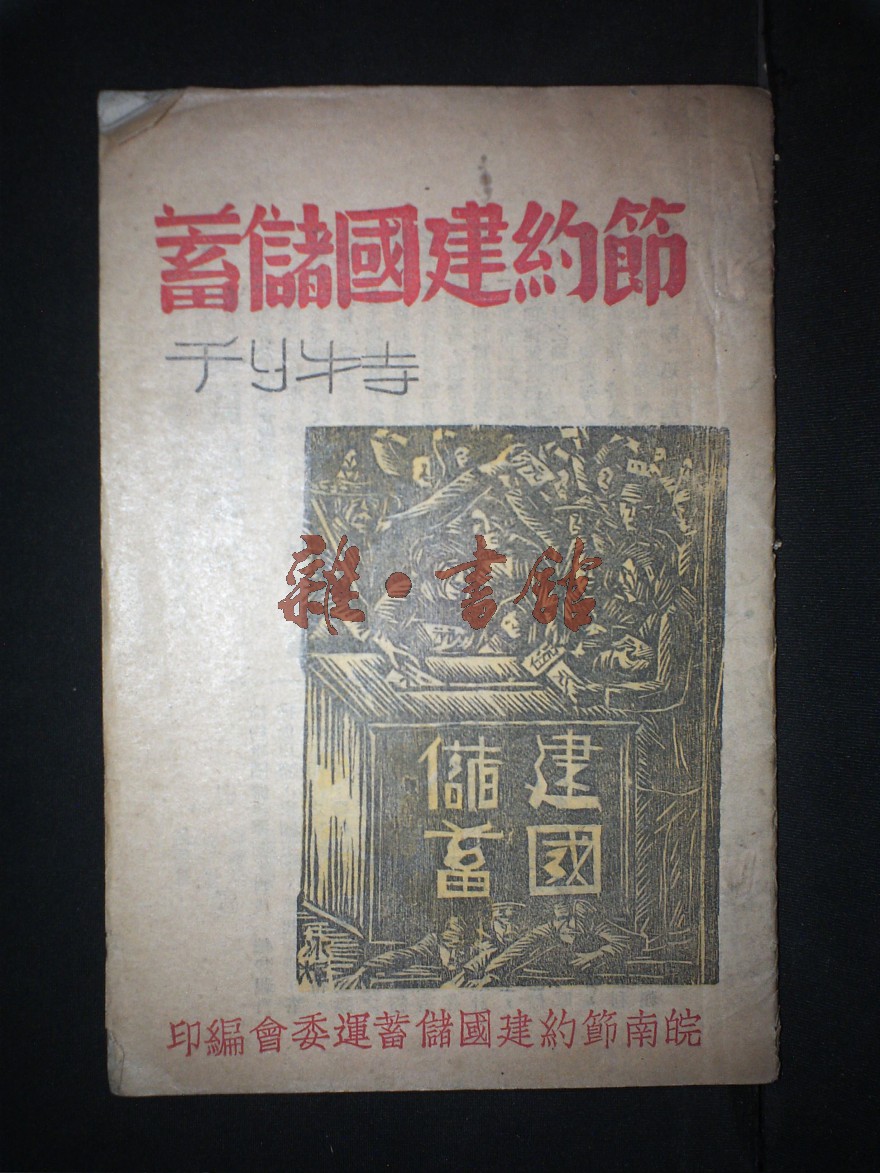 節約建國儲蓄
特刊
雜·書館
建國
儲蓄
皖南節約建國儲蓄運委會編印